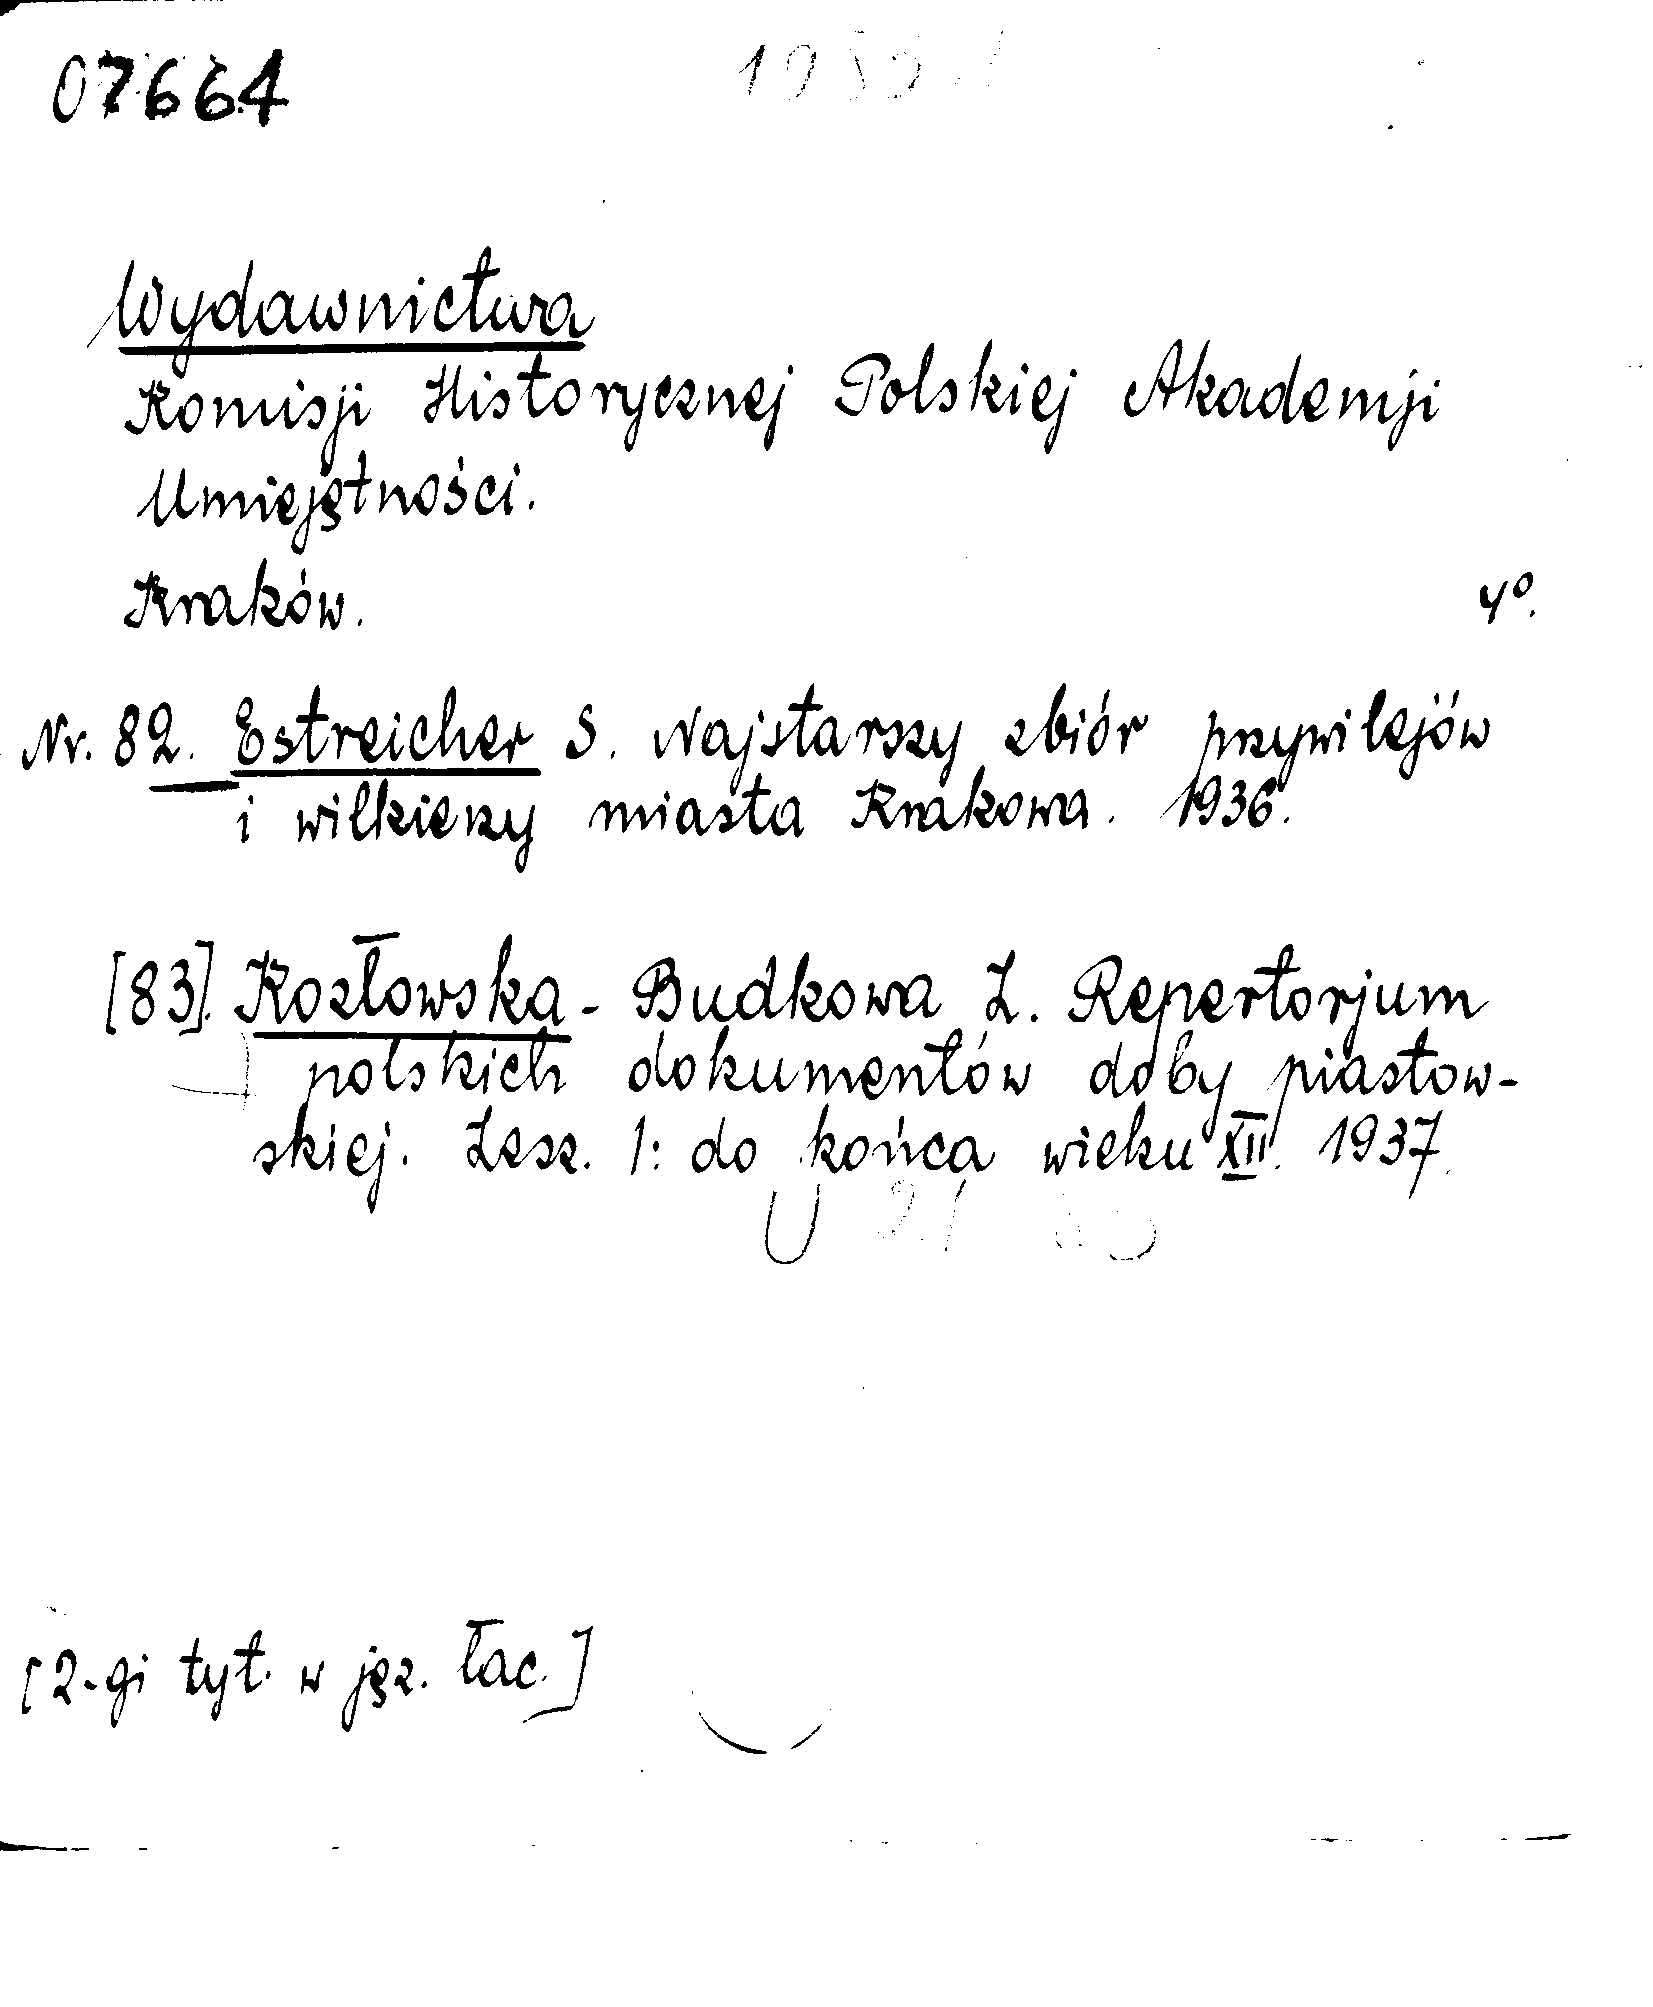 07664
Wydawnictwa
Komisji Historycznej Polskiej Akademji
Umiejętności.
Kraków. 4º.
Nr. 82. Estreicher S. Najstarszy zbiór przywilejów
i wilkierzy miasta Krakowa. 1936.
[83]. Kozłowska - Budkowa Z. Repertorjum
polskich dokumentów doby piastow-
skiej. Zesz. 1: do końca wieku XII. 1937.
[2-gi tyt. w jęz. łac.]